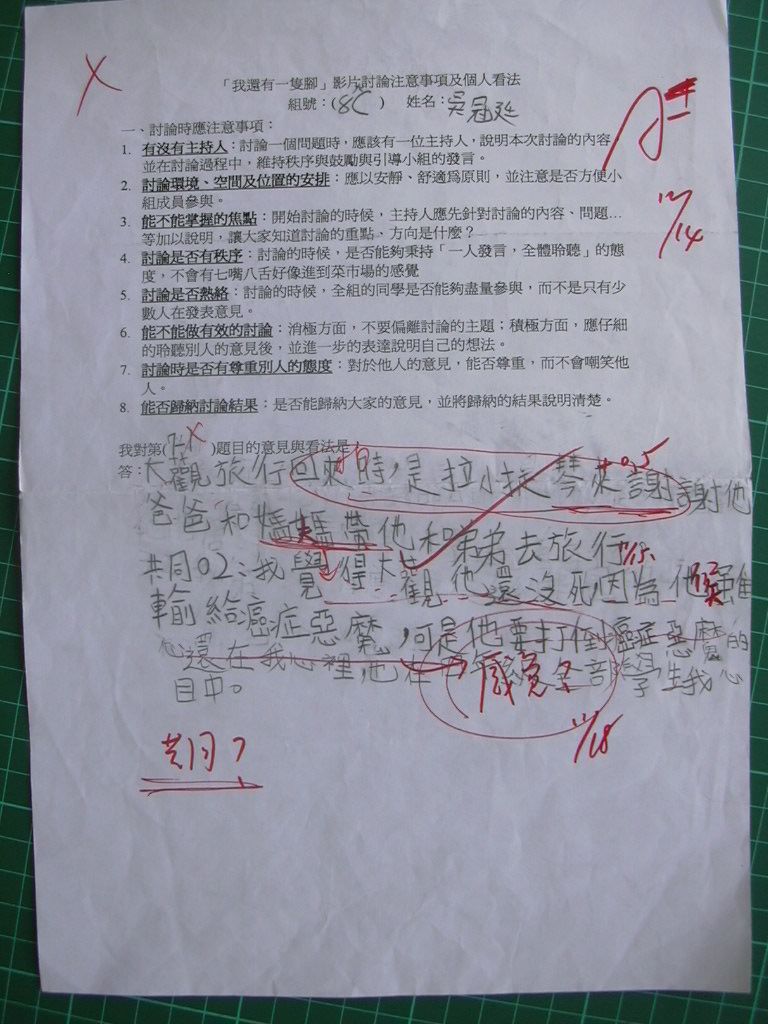 「我還有一隻腳」影片討論注意事項及個人看法
組號：(8C) 姓名：吳冠延
A
12/14
一、討論時應注意事項：
1. 有沒有主持人：討論一個問題時，應該有一位主持人，說明本次討論的內容，
並在討論過程中，維持秩序與鼓勵與引導小組的發言。
2. 討論環境、空間及位置的安排：應以安靜、舒適為原則，並注意是否方便小
組成員參與。
3. 能不能掌握的焦點：開始討論的時候，主持人應先針對討論的內容、問題…
等加以說明，讓大家知道討論的重點、方向是什麼？
4. 討論是否有秩序：討論的時候，是否能夠秉持「一人發言，全體聆聽」的態
度，不會有七嘴八舌好像進到菜市場的感覺
5. 討論是否熱絡：討論的時候，全組的同學是否能夠盡量參與，而不是只有少
數人在發表意見。
6. 能不能做有效的討論：消極方面，不要偏離討論的主題；積極方面，應仔細
的聆聽別人的意見後，並進一步的表達說明自己的想法。
7. 討論時是否有尊重別人的態度：對於他人的意見，能否尊重，而不會嘲笑他
人。
8. 能否歸納討論結果：是否能歸納大家的意見，並將歸納的結果說明清楚。
我對第( )題目的意見與看法是：
答：大觀旅行回來時，是拉小提琴來謝謝他
爸爸和媽媽帶他和弟弟去旅行
共同02：我覺得大觀他還沒死，因為他雖
輸給癌症惡魔，可是他要打倒癌症惡魔的
心還在我心裡，他在 全部學生我心
目中。
感免？
12/18
共同？